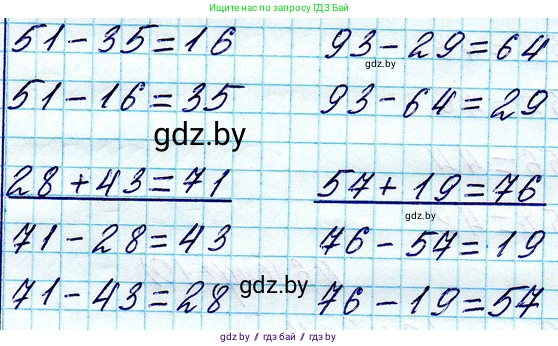 Получите на
по запросу: ГДЗ Бай
51-35=16 93-29=64
gdz.by
51-16=35 93-64=29
gdz.by
28+43=71 57+19=76
gdz.by
71-28=43 76-57=19
gdz.by
71-43=28 76-19=57
gdz.by / гдз бай / гдз by